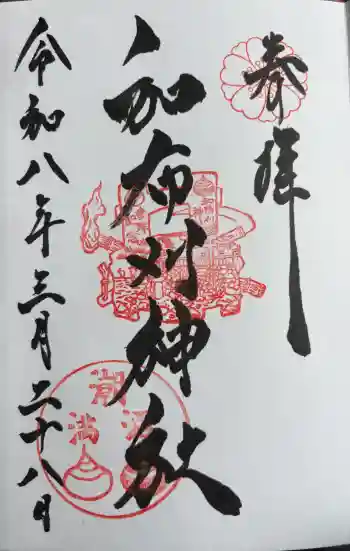 奉拝
和布刈神社
令和八年三月二十八日
満
潮